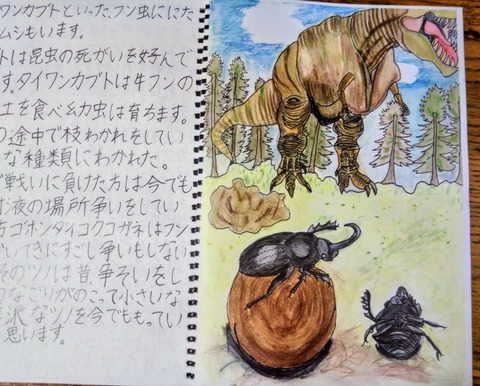 ワンカブトといった、フン虫ににた
ムシもいます。
トは昆虫の死がいを好んで
す。タイワンカブトは牛フンの
土を食べ幼虫は育ちます。
の途中で枝わかれをしてい
な種類にわかれた。
戦いに負けた方は今でも
液の場所争いをしてい
ゴホンダイコクコガネはフン
てきにすごし争いもしない
そのツノは昔、争そいをし
なごりがのこって小さいな
沢なツノを今でももってい
思います。